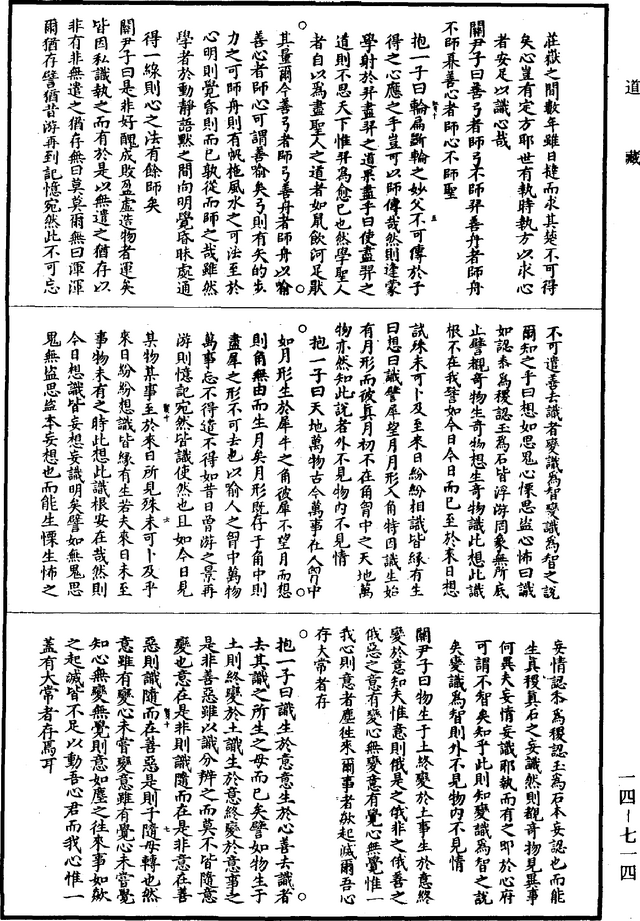 道藏
莊嶽之間數年雖日撻而求其楚不可得
矣心豈有定方耶世有執時執方以求心
者安足以識心哉
關尹子曰善弓者師弓不師羿善舟者師舟
不師奡善心者師心不師聖
抱一子曰輪扁斲輪之妙父不可傳於子
得之心應之手豈可以師傳哉然則逢蒙
學射於羿盡羿之道果盡乎曰使盡羿之
道則不思天下惟羿為愈已也然學聖人
者自以為盡聖人之道者如鼠飲河足厭
其量爾今善弓者師弓善舟者師舟以喻
善心者師心可謂善喻矣弓則有矢的步
力之可師舟則有帆柂風水之可法至於
心明則覺昏則而已孰從而師之哉雖然
學者於動靜語默之間向明覺昏昧處通
得一線則心之法有餘師矣
關尹子曰是非好醜成敗盈虛造物者運矣
皆因私識執之而有於是以無遣之猶存以
非有非無遣之猶存無曰莫莫爾無曰渾渾
爾猶存譬猶昔游再到記憶宛然此不可忘
不可遣善去識者變識為智變識為智之說
爾知之乎曰想如思鬼心慄思盜心怖曰識
如認黍為稷認玉為石皆浮游罔象無所底
止譬觀奇物生奇物想生奇物識此想此識
根不在我譬如今日今日而已至於來日想
試殊未可卜及至來日紛紛相識皆緣有生
曰想曰識譬犀望月月形入角特因識生始
有月形而彼真月初不在角胷中之天地萬
物亦然知此說者外不見物內不見情
抱一子曰天地萬物古今萬事在人胷中
如月形生於犀牛之角彼犀不望月而想
則角無由而生月矣月形既存于角中則
盡犀之形不可去也以喻人之胷中萬物
萬事忘不得遣不得如昔日曾游之景再
游則憶記宛然皆識使然也且如今日見
某物某事至於來日所見殊未可卜及乎
來日紛紛想識皆緣有生若夫來日未至
事物未有之時此想此識根安在哉然則
今日想識皆妄想妄識明矣譬如無鬼思
鬼無盜思盜本妄想也而能生慄生怖之
妄情認黍為稷認玉為石本妄認也而能
生真稷真石之妄識然則觀奇物見異事
何異夫妄情妄識耶執而有之即於心府
可謂不智矣知乎此則知變識為智之說
矣變識為智則外不見物內不見情
關尹子曰物生于土終變於土事生於意終
變於意知夫惟意則俄是之俄非之俄善之
俄惡之意有變心無變意有覺心無覺惟一
我心則意者塵往來爾事者欻起滅爾吾心
存大常者存
抱一子曰識生於意意生於心善去識者
去其識之所生之母而已矣譬如物生于
土則終變於土識生於意終變於意事之
是非善惡雖以識分辨之而莫不皆隨意
變也意在是非則識隨而在是非意在善
惡則識隨而在善惡是則子隨母轉也然
意雖有變心未嘗變意雖有覺心未嘗覺
知心無變無覺則意如塵之往來事如欻
之起滅皆不足以動吾心君而我心惟一
蓋有大常者存焉耳
一四-七一四